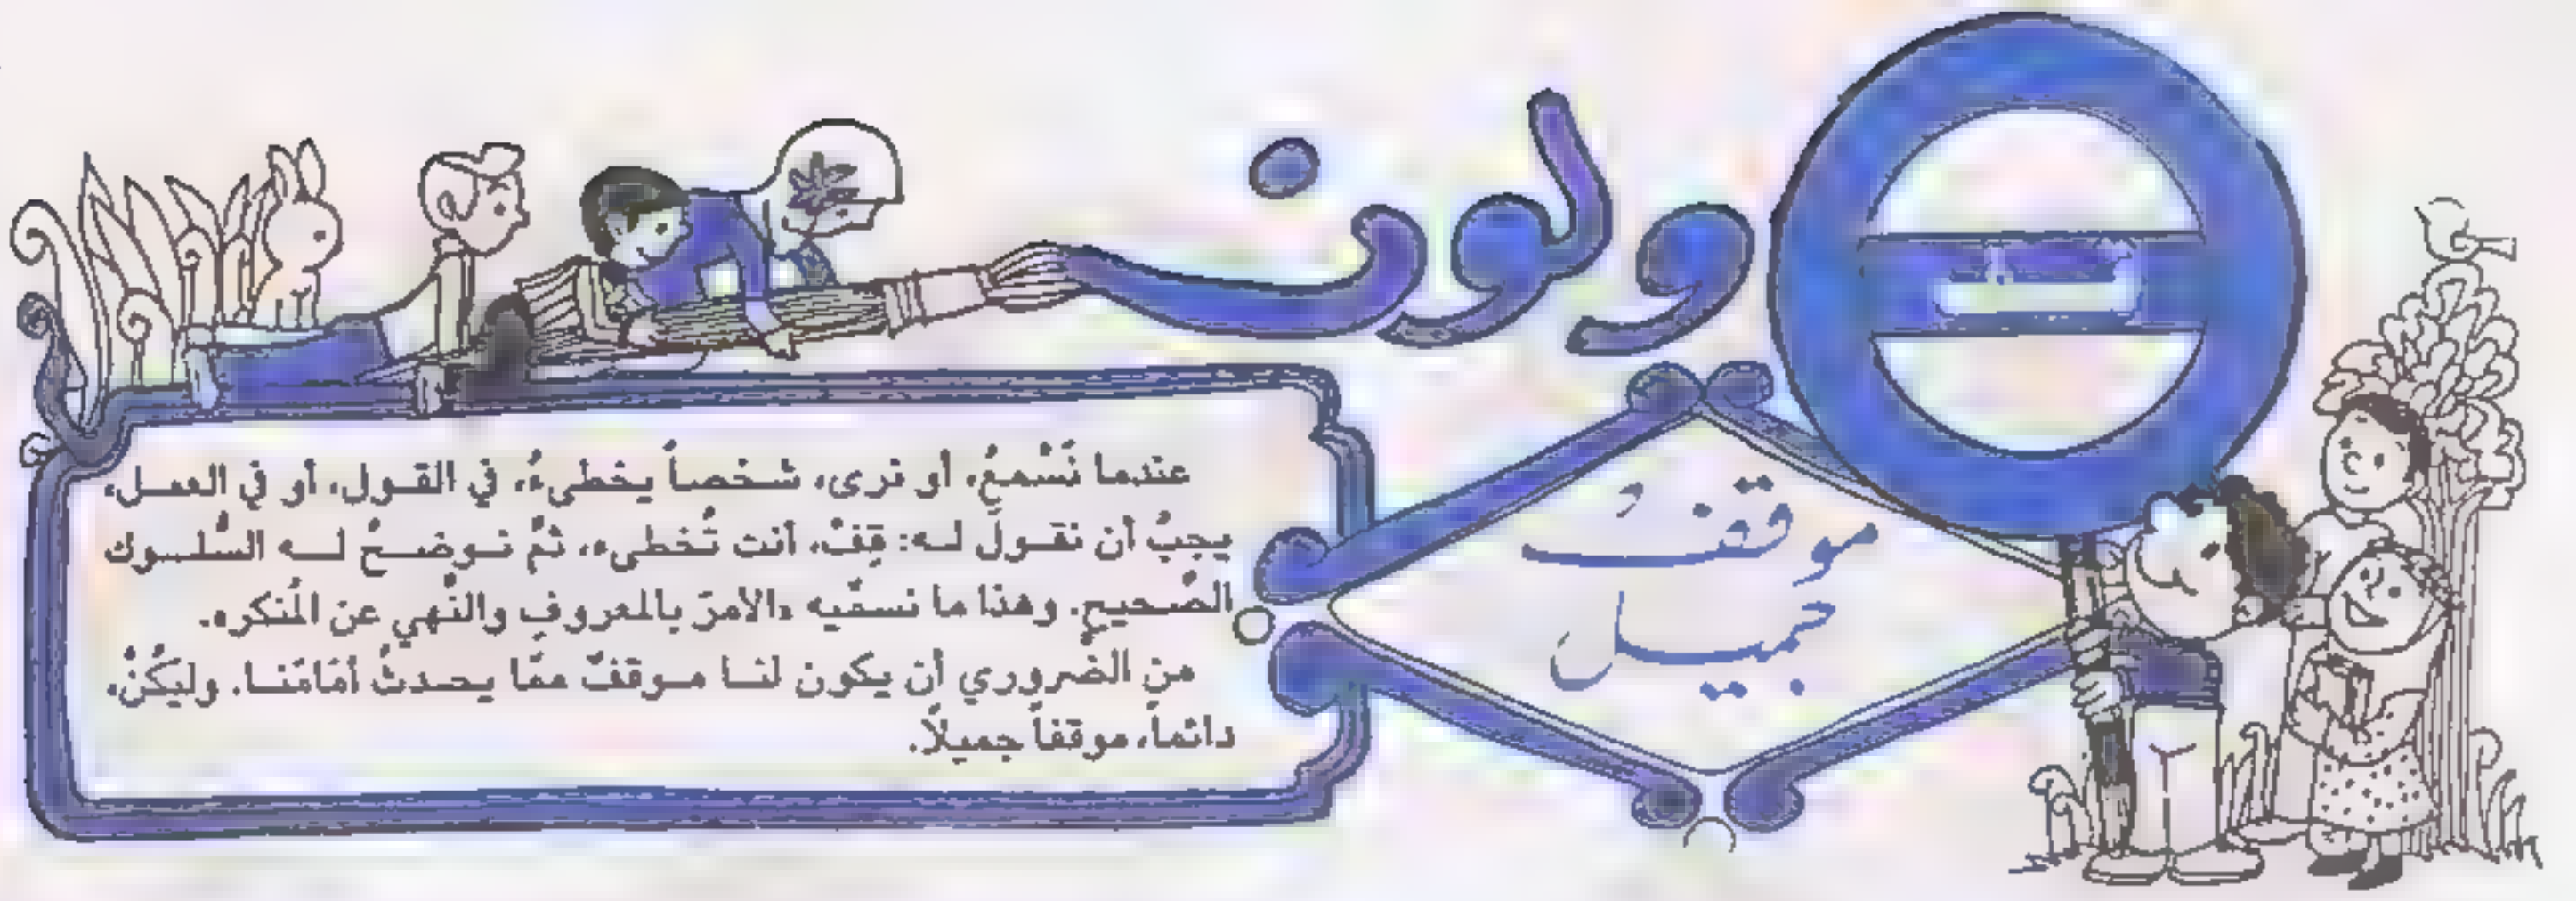 ولون
موقفٌ
جميل
عندما نَسْمعُ، أو نرى، شخصاً يخطىءُ، في القول، أو في العمل،
يجبُ أن نقولَ له: قِفْ، أنت تُخطىء، ثمَّ نوضحُ له السُّلوك
الصَّحيح. وهذا ما نسمّيه «الأمرَ بالمعروفِ والنَّهي عن المُنكر».
من الضَّروري أن يكون لنا موقفٌ ممَّا يحدثُ أمَامَنا. وليَكُنْ،
دائماً، موقفاً جميلاً.